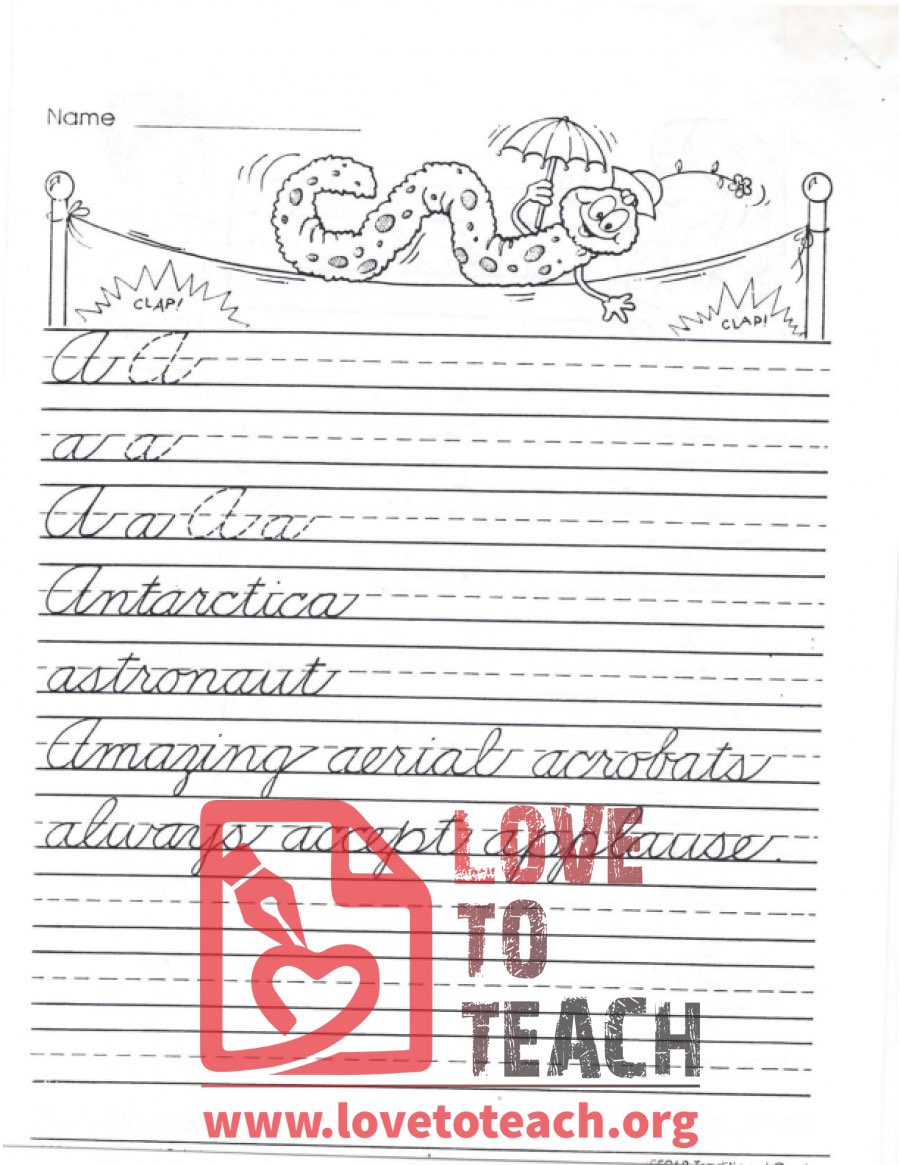 Name
CLAP!
CLAP!
A A
a a
A a A a
Antarctica
astronaut
Amazing aerial acrobats
always accept applause.
LOVE
TO
TEACH
www.lovetoteach.org